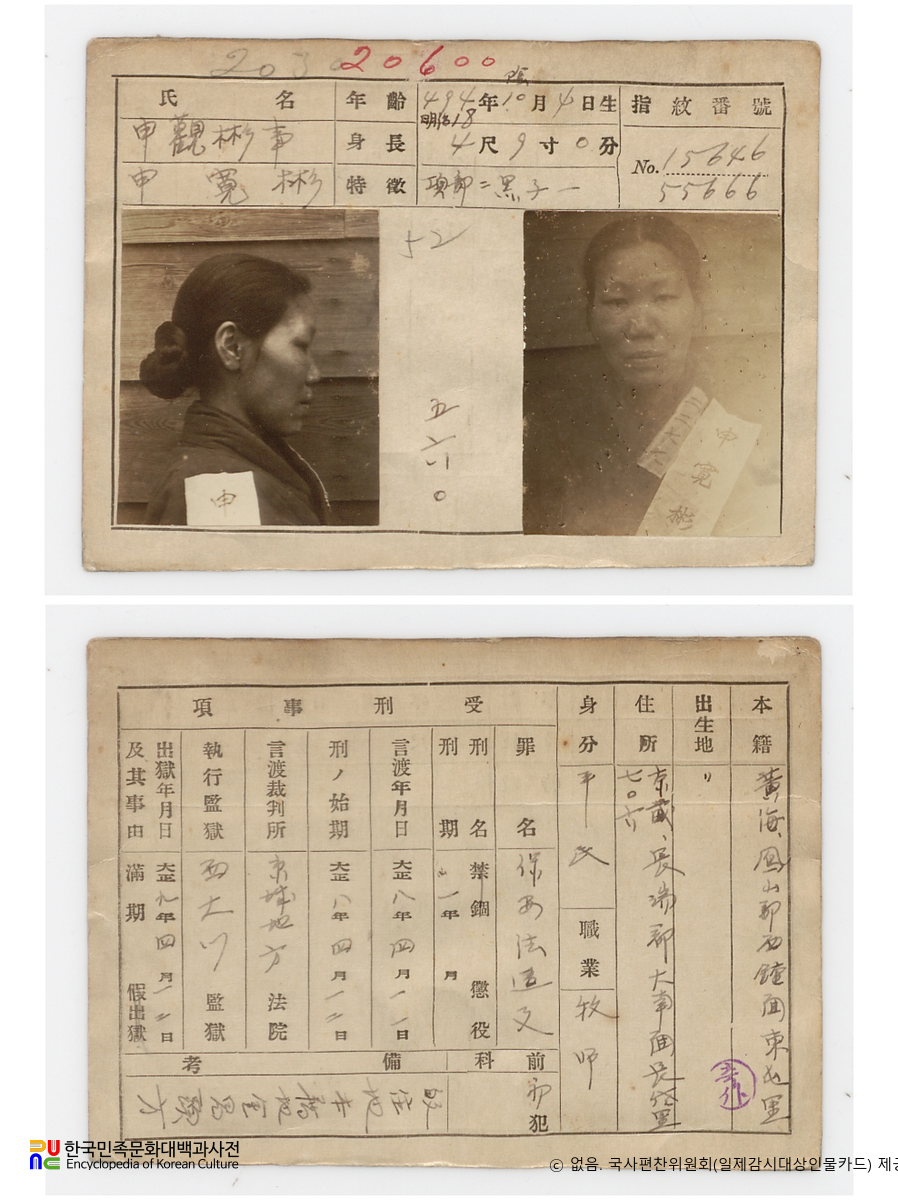 203 20600
氏名
申觀彬事
申寬彬
年齡
494年10月4日生
明治18
身長
4尺9寸0分
特徵
項部二黒子一
指紋番號
No. 15646
55666
52
五六〇
申
申寬彬
本籍
黃海、鳳山郡西鐘面
出生地
〃
住所
長端郡大南面
身分
平民
職業
牧師
受刑事項
罪名
保安法違反
刑名
禁錮 懲役
刑期
一年 月
言渡年月日
大正八年四月一一日
刑ノ始期
大正八年四月一一日
言渡裁判所
京城地方法院
執行監獄
西大門監獄
出獄年月日
及其事由
大正九年四月一二日
滿期 假出獄
前科
初犯
備考
한국민족문화대백과사전
Encyclopedia of Korean Culture
© 없음. 국사편찬위원회(일제감시대상인물카드) 제공